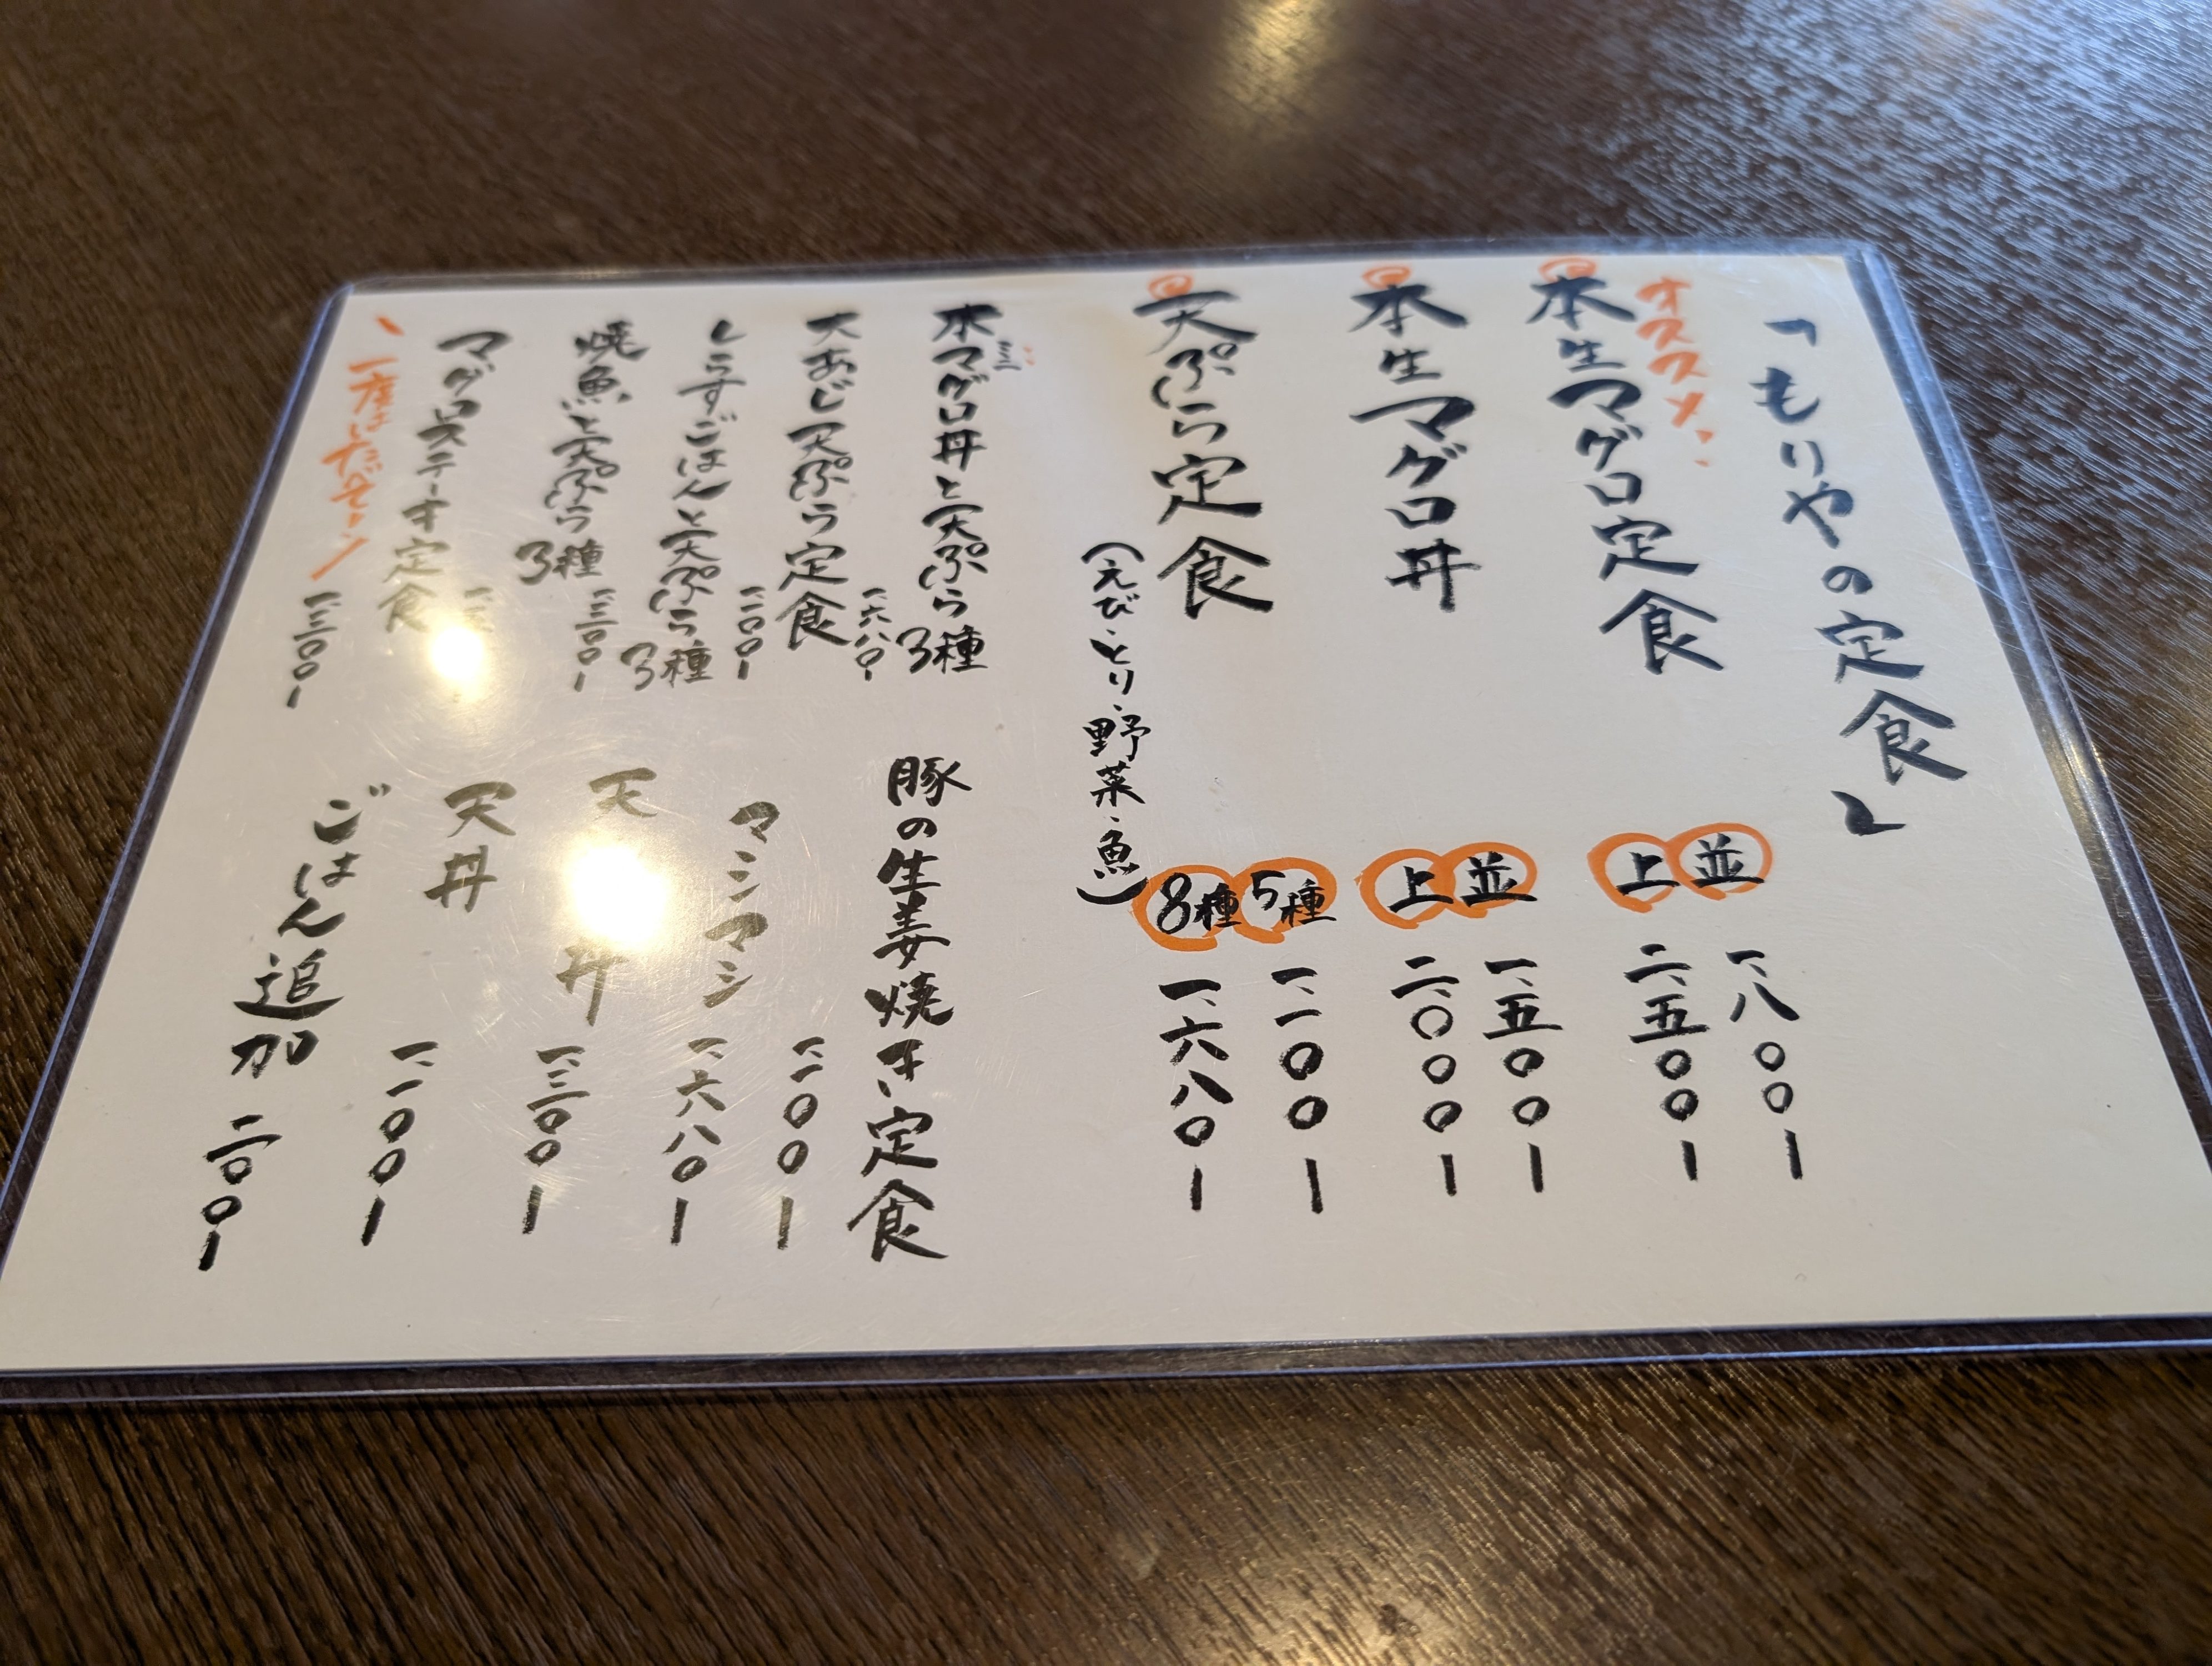 「もりやの定食」
オススメ!!
本生マグロ定食
並 一、八〇〇ー
上 二、五〇〇ー
本生マグロ丼
並 一、五〇〇ー
上 二、〇〇〇ー
天ぷら定食
5種 一、一〇〇ー
8種 一、六八〇ー
(えび・とり・野菜・魚)
ミニ
本マグロ丼と天ぷら3種
一、六八〇ー
大あじ天ぷら定食
一、一〇〇ー
しらすごはんと天ぷら3種
一、三〇〇ー
焼魚と天ぷら3種
マグロステーキ定食
一、三〇〇ー
一度はたべて!
豚の生姜焼き定食
一、一〇〇ー
マシマシ 一、六八〇ー
天丼 一、三〇〇ー
天丼 一、一〇〇ー
ごはん追加 二〇〇ー